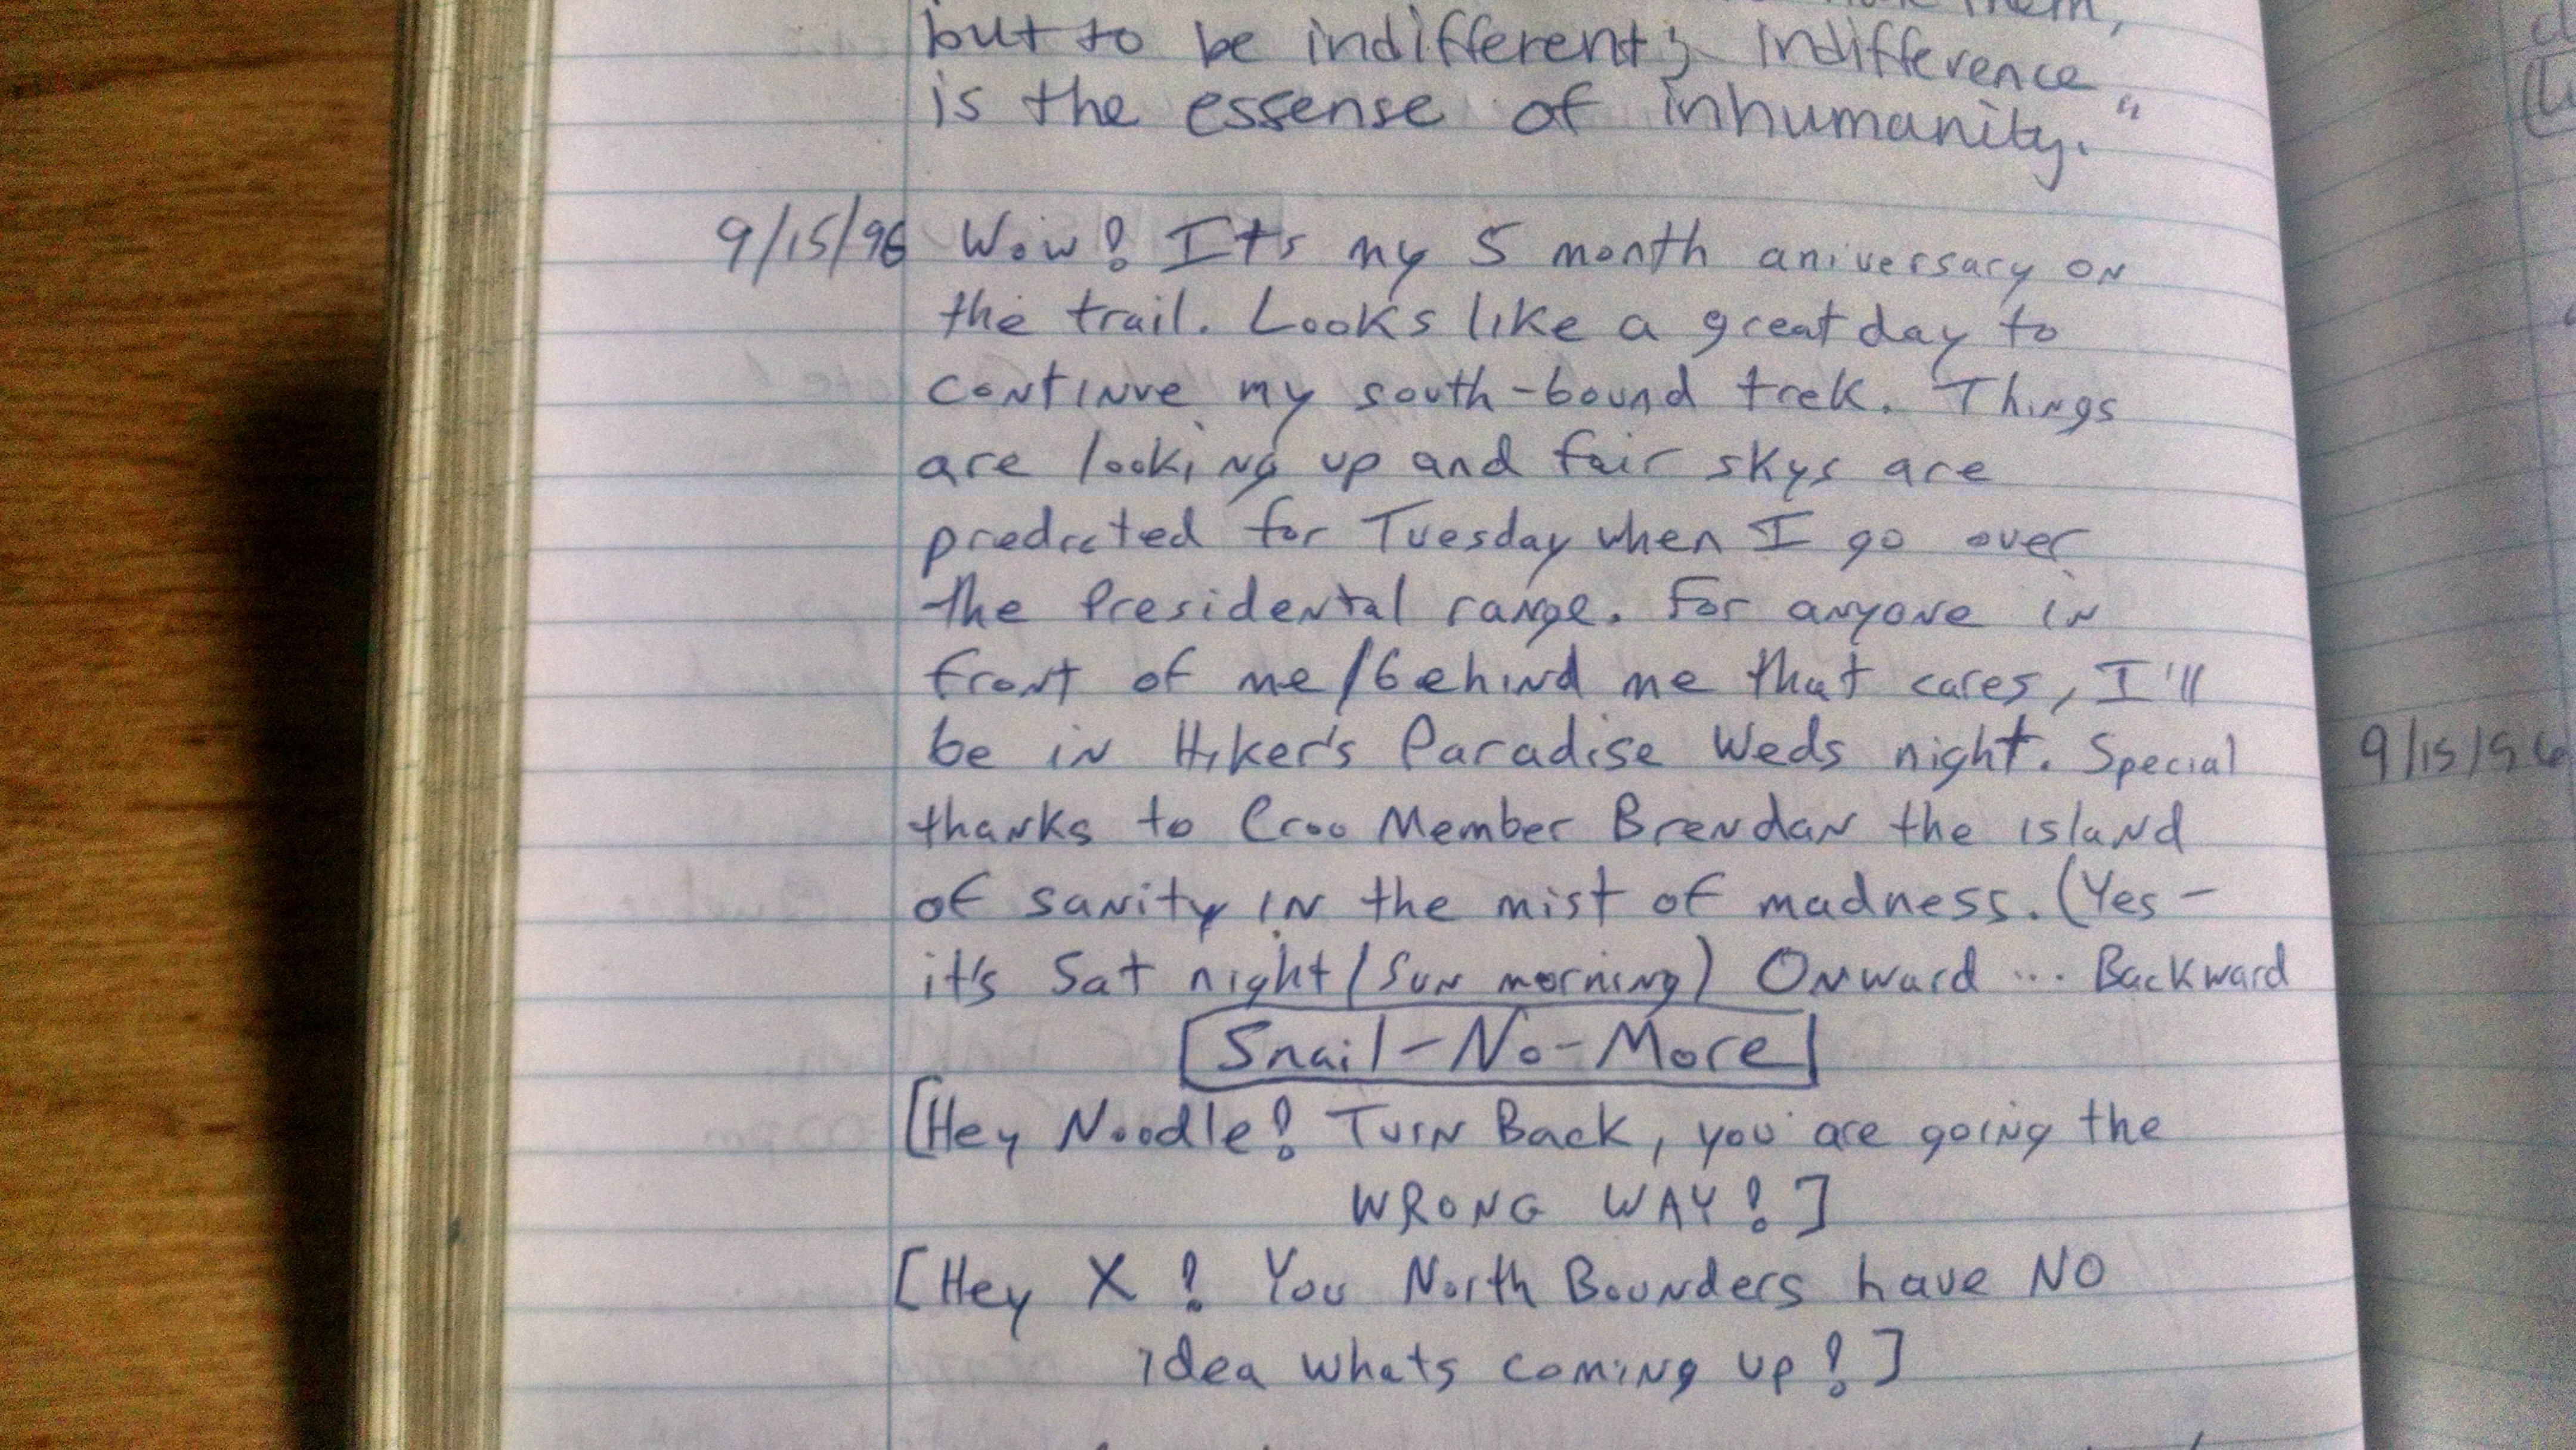 them,
but to be indifferent; indifference
is the essense of inhumanity."
9/15/96 Wow! It's my 5 month aniversary on
the trail. Looks like a great day to
continue my south-bound trek. Things
are looking up and fair skys are
predicted for Tuesday when I go over
the Presidental range. For anyone in
front of me/behind me that cares, I'll
be in Hiker's Paradise Weds night. Special
thanks to Croo Member Brendan the island
of sanity in the mist of madness. (Yes -
it's Sat night/Sun morning) Onward ... Backward
Snail-No-More
[Hey Noodle! Turn Back, you are going the
WRONG WAY!]
[Hey X! You North Bounders have NO
idea whats coming up!]
9/15/96